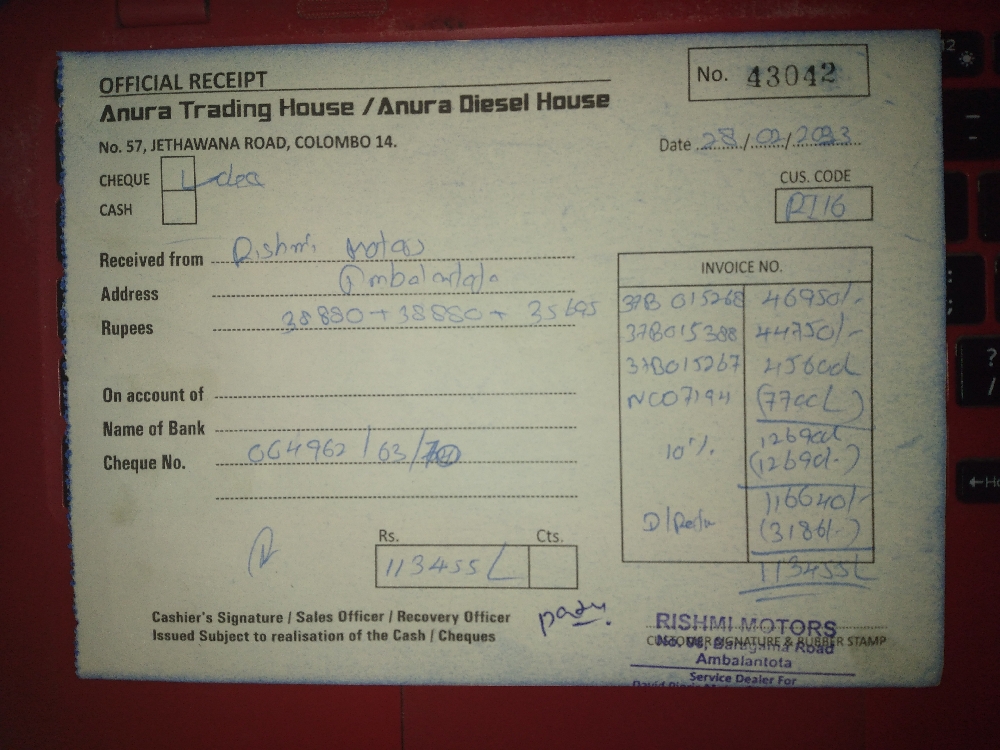 OFFICIAL RECEIPT
No. 43042
Anura Trading House / Anura Diesel House
No. 57, JETHAWANA ROAD, COLOMBO 14.
Date 28/02/2023
CHEQUE
CUS. CODE
CASH
RI16
Received from Rishmi Motors
Address Ambalantota
Rupees 38880 + 38880 + 35695
INVOICE NO.
37B 015268 46950/-
37B015388 44750/-
37B015267 45600/-
NC07194 (7700/-)
On account of
129600/-
Name of Bank
10% (12690/-)
Cheque No. 004962/63/
116640/-
(3186/-)
Rs. Cts.
113455/-
113455/-
Cashier's Signature / Sales Officer / Recovery Officer
Issued Subject to realisation of the Cash / Cheques
RISHMI MOTORS
CUSTOMER SIGNATURE & RUBBER STAMP
Road
Ambalantota
Service Dealer For